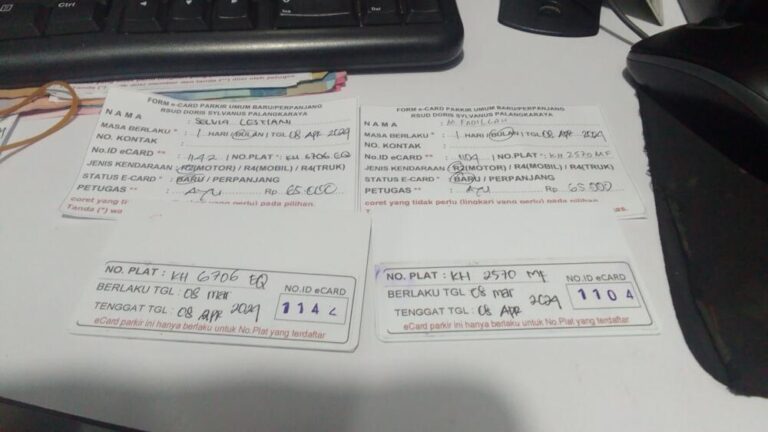 Ctrl
Alt
FORM e-CARD PARKIR UMUM BARU/PERPANJANG
RSUD DORIS SYLVANUS PALANGKARAYA
N A M A : SELVIA LESTIANI
MASA BERLAKU * : 1 HARI / BULAN / TGL 08 Apr 2024
NO. KONTAK :
No.ID eCARD ** : 1142 / NO.PLAT : KH 6706 EQ
JENIS KENDARAAN : R2(MOTOR) / R4(MOBIL) / R4(TRUK)
STATUS E-CARD * : BARU / PERPANJANG
PETUGAS ** : AYU Rp 65.000
coret yang tidak perlu (lingkari yang perlu) pada pilihan.
Tanda (*) wa
FORM e-CARD PARKIR UMUM BARU/PERPANJANG
RSUD DORIS SYLVANUS PALANGKARAYA
N A M A : M FADILLAH
MASA BERLAKU * : 1 HARI / BULAN / TGL 08 Apr 2024
NO. KONTAK :
No.ID eCARD ** : 1104 / NO.PLAT : KH 2570 MF
JENIS KENDARAAN : R2(MOTOR) / R4(MOBIL) / R4(TRUK)
STATUS E-CARD * : BARU / PERPANJANG
PETUGAS ** : AYU Rp 65.000
coret yang tidak perlu (lingkari yang perlu) pada pilihan.
NO. PLAT : KH 6706 EQ
BERLAKU TGL : 08 Mar
TENGGAT TGL : 08 Apr 2024
NO.ID eCARD
1142
eCard parkir ini hanya berlaku untuk No.Plat yang terdaftar
NO. PLAT : KH 2570 MF
BERLAKU TGL : 08 Mar
TENGGAT TGL : 08 Apr 2024
NO.ID eCARD
1104
eCard parkir ini hanya berlaku untuk No.Plat yang terdaftar